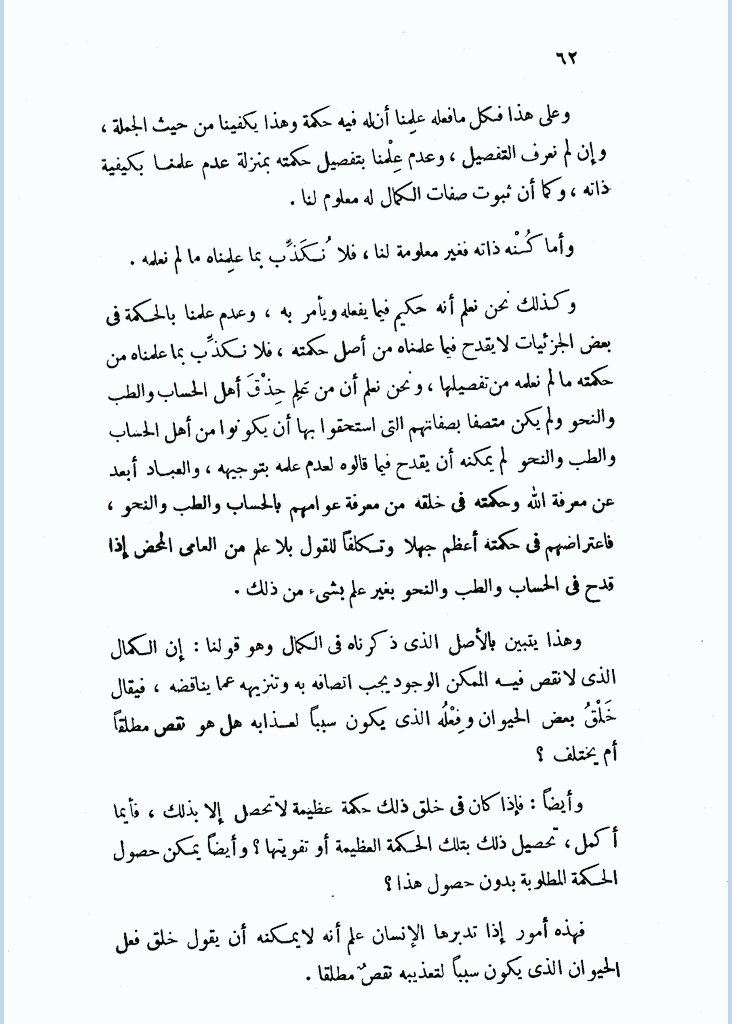 ٦٢
وعلى هذا فكل مافعله علِمنا أن له فيه حكمة وهذا يكفينا من حيث الجملة ،
وإن لم نعرف التفصيل ، وعدم عِلْمنا بتفصيل حكمته بمنزلة عدم علمنا بكيفية
ذاته ، وكما أن ثبوت صفات الكمال له معلوم لنا .
وأما كُنْه ذاته فغير معلومة لنا ، فلا نُكَذِّب بما علِمناه ما لم نعلمه .
وكذلك نحن نعلم أنه حكيم فيما يفعله ويأمر به ، وعدم علمنا بالحكمة فى
بعض الجزئيات لايقدح فيما علمناه من أصل حكمته ، فلا نكذِّب بما علمناه من
حكمته مالم نعلمه من تفصيلها ، ونحن نعلم أن من عَلِم حِذْقَ أهل الحساب والطب
والنحو ولم يكن متصفا بصفاتهم التى استحقوا بها أن يكونوا من أهل الحساب
والطب والنحو لم يمكنه أن يقدح فيما قالوه لعدم علمه بتوجيهه ، والعباد أبعد
عن معرفة الله وحكمته فى خلقه من معرفة عوامهم بالحساب والطب والنحو ،
فاعتراضهم فى حكمته أعظم جهلا وتكلفاً للقول بلا علم من العامى المحض إذا
قدح فى الحساب والطب والنحو بغير علم بشىء من ذلك .
وهذا يتبين بالأصل الذى ذكرناه فى الكمال وهو قولنا : إن الكمال
الذى لانقص فيه الممكن الوجود يجب اتصافه به وتنزيهه عما يناقضه ، فيقال
خَلْقُ بعض الحيوان وفِعْلُه الذى يكون سبباً لعذابه هل هو نقص مطلقاً
أم يختلف ؟
وأيضاً : فإذا كان فى خلق ذلك حكمة عظيمة لاتحصل إلا بذلك ، فأيما
أكمل ، تحصيل ذلك بتلك الحكمة العظيمة أو تفويتها ؟ وأيضاً يمكن حصول
الحكمة المطلوبة بدون حصول هذا ؟
فهذه أمور إذا تدبرها الإنسان علم أنه لايمكنه أن يقول خلق فعل
الحيوان الذى يكون سبباً لتعذيبه نقصٌ مطلقا .